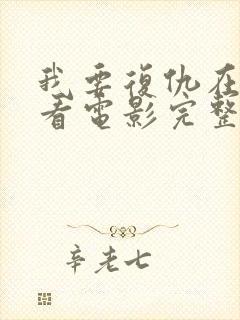 我要復仇在
看電影完整
辛老七